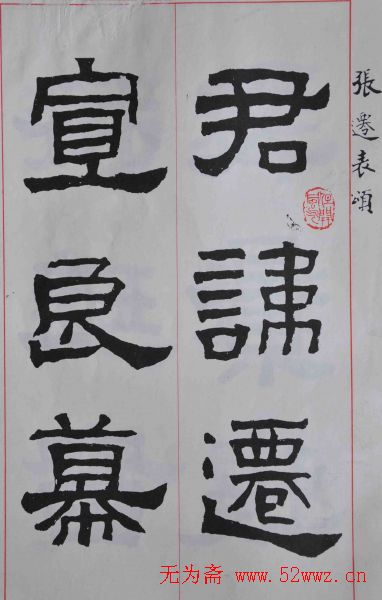 張遷表頌
君諱遷
宣良幕
无为斋 www.52wwz.cn